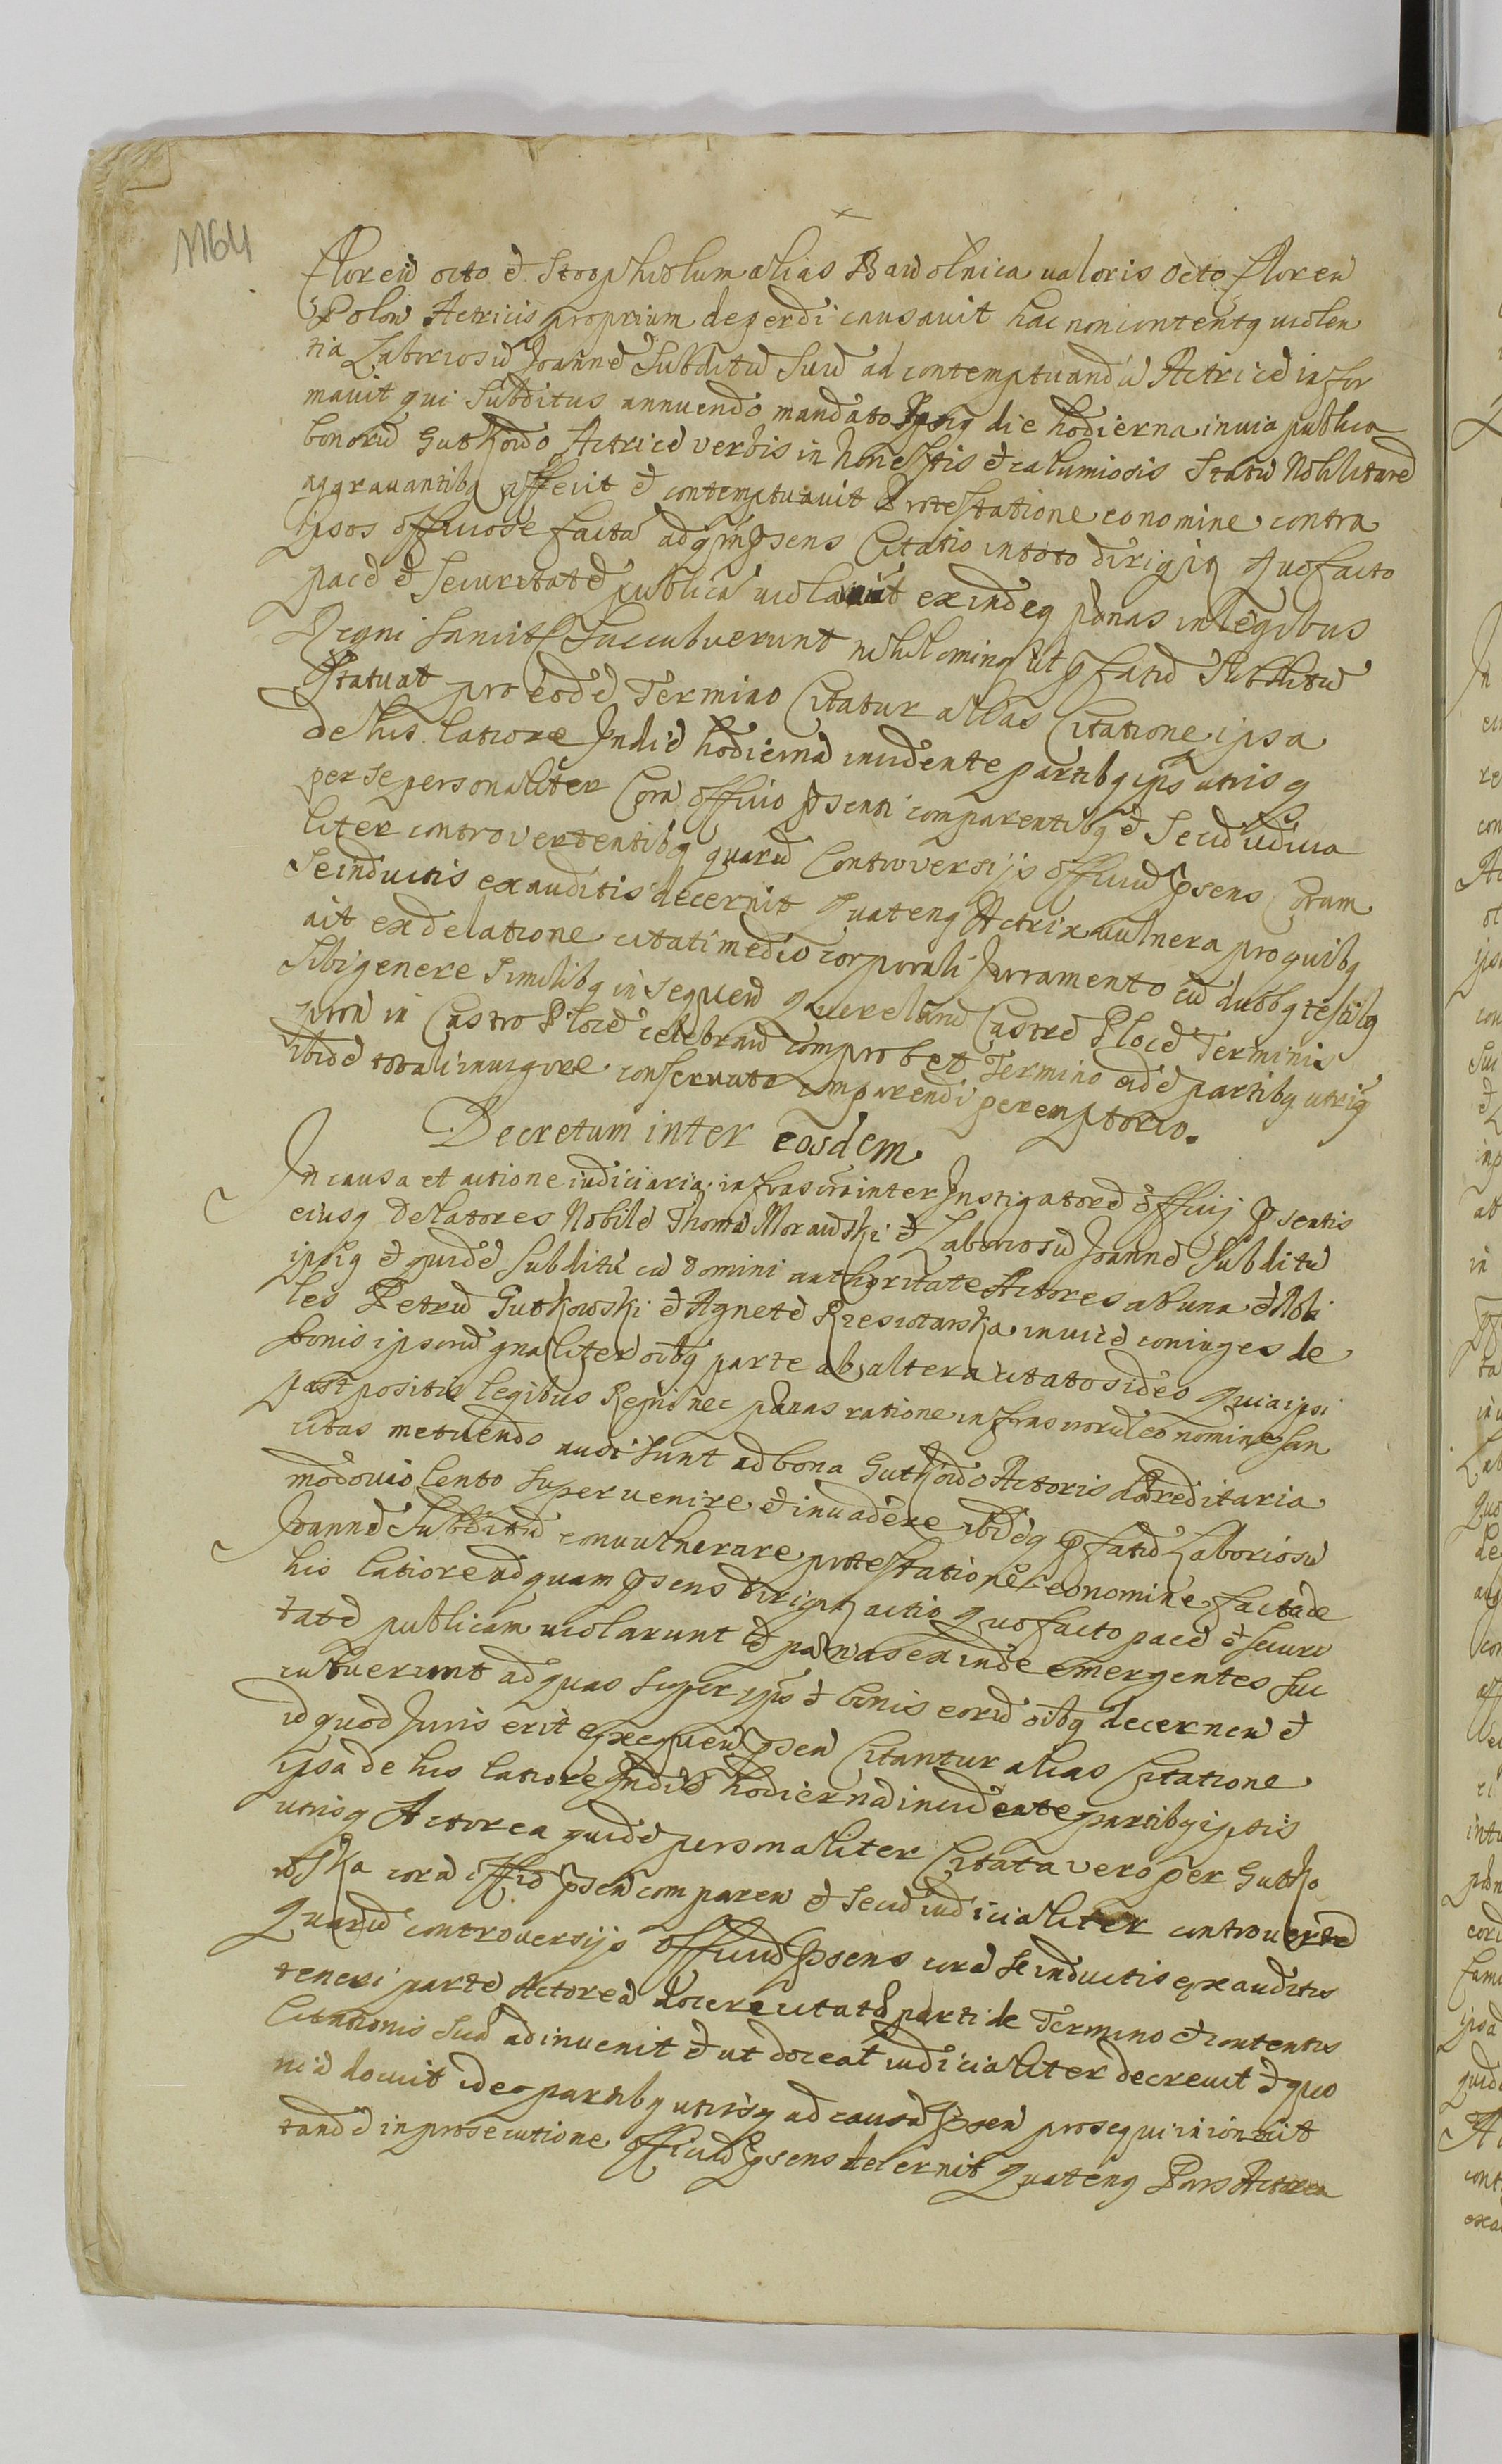 1164
floren octo et Strophiolum alias Bawolnica valoris octo floren
Polon Actricis proprium deperdi causavit hac non contentq violen
tia Laboriosu Joanne Subditu Suu ad contemptuanda Actrice infor
mavit qui Subditus annuendo mandato Ipsiq die hodierna in via publica
bonoru Gutkowo Actrice verbis in honestis et calumiosis Statu Nobilitare
aggravantibq affecit et contemptuavit Protestatione eo nomine contra
ipsos officiose facta ad qm psens Citatio in toto dirigit Quo facto
pace et Securitate publica violavit exindeq pænas in legibus
Regni Sancit Succubuerunt nihilominq ut pfatu Subditu
Statuat pro eode Termino Citatur alias Citatione ipsa
de his latiore In die hodierna incidente partibq ips utrisq
per se personaliter Cora officio psenti comparentibq et Secu iudicia
liter controvertentibq quaru Controversijs officiu psens Coram
Se inductis exauditis decernit Quatenq Actrix vulnera pro quibq
ait ex delatione citati medio corporali Juramento cu duobq testibq
Sibi genere Similibq in Sequen Querelaru Castre Ploce Terminis
pron in Castro Ploce celebran comprobet Termino eide partibq utrisq
ibide totali in vigore conservato comparendi peremptorio.
Decretum inter eosdem
In causa et actione iudiciaria infrascra inter Instigatore officij psentis
eiusq delatores Nobile Thoma Morawski et Laboriosu Joanne Subditu
ipsiq et quide Subditu cu domini authoritate Actores ab una et Nobi
les Petru Gutkowski et Agnete invice coniuges de
bonis ipsoru gnaliter oibq parte ab altera citatos ideo quia ipsi
postpositis legibus Regni nec pænas ratione infrascroru eo nomine San
citas metuendo ausi sunt ad bona Gutkowo Actoris hæreditaria
modo violento supervenire et invadere ibideq pfatu Laboriosu
Joanne Subditu convulnerare protestatione eo nomine facta de
his latiore ad quam psens dirigit actio quo facto pace et Securi
tate publicam violarunt et pænas exinde emergentes Suc
cubuerunt ad quas super ips et bonis eoru oibq decernen et
id quod Juris erit exequen psen Citantur alias Citatione
ipsa de his latiore In die hodierna incidente partibq ipsis
utrisq Actorea quide personaliter Citata vero per Gutko
wska cora offio psen comparen et Secu iudicialiter controverten
Quaru controversijs officiu psens cora se inductis exauditis
teneri parte Actorea docere citata parti de Termino et contentis
Citationis Sua ad invenit et ut doceat iudicialiter decrevit et quo
nia docuit ideo partibq utrisq ad causa psen prosequi iniunxit
tande in prosecutione officiu psens decernit Quatenq Pars Actorea